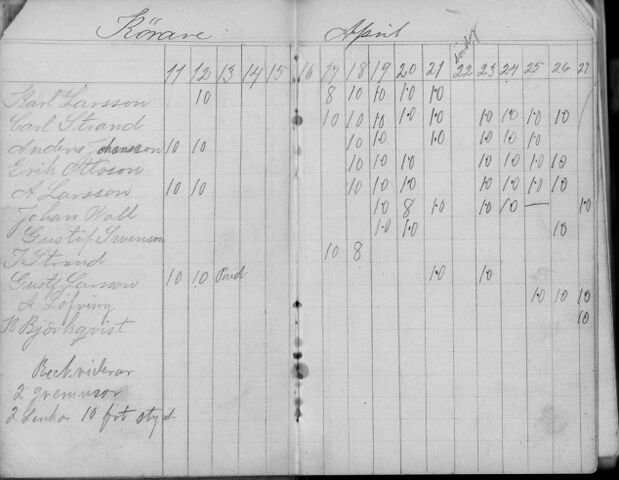 Körare April
11 12 13 14 15 16 17 18 19 20 21 22 23 24 25 26 27
Karl Larsson 10 8 10 10 10 10
Carl Strand 10 10 10 10 10 10 10 10 10
Anders Johansson 10 10 10 10 10 10 10 10
Erik Ottoson 10 10 10 10 10 10 10
A Larsson 10 10 10 10 10 10 10 10 10
Johan Wall 10 8 10 10 10 — 10
Gustif Swenson 10 10 10
J Strand 10 8
Gustf Larsson 10 10 Paid 10 10
A Löfving 10 10 10
K Björkqvist 10
2
2 Länkar 10 fot styck